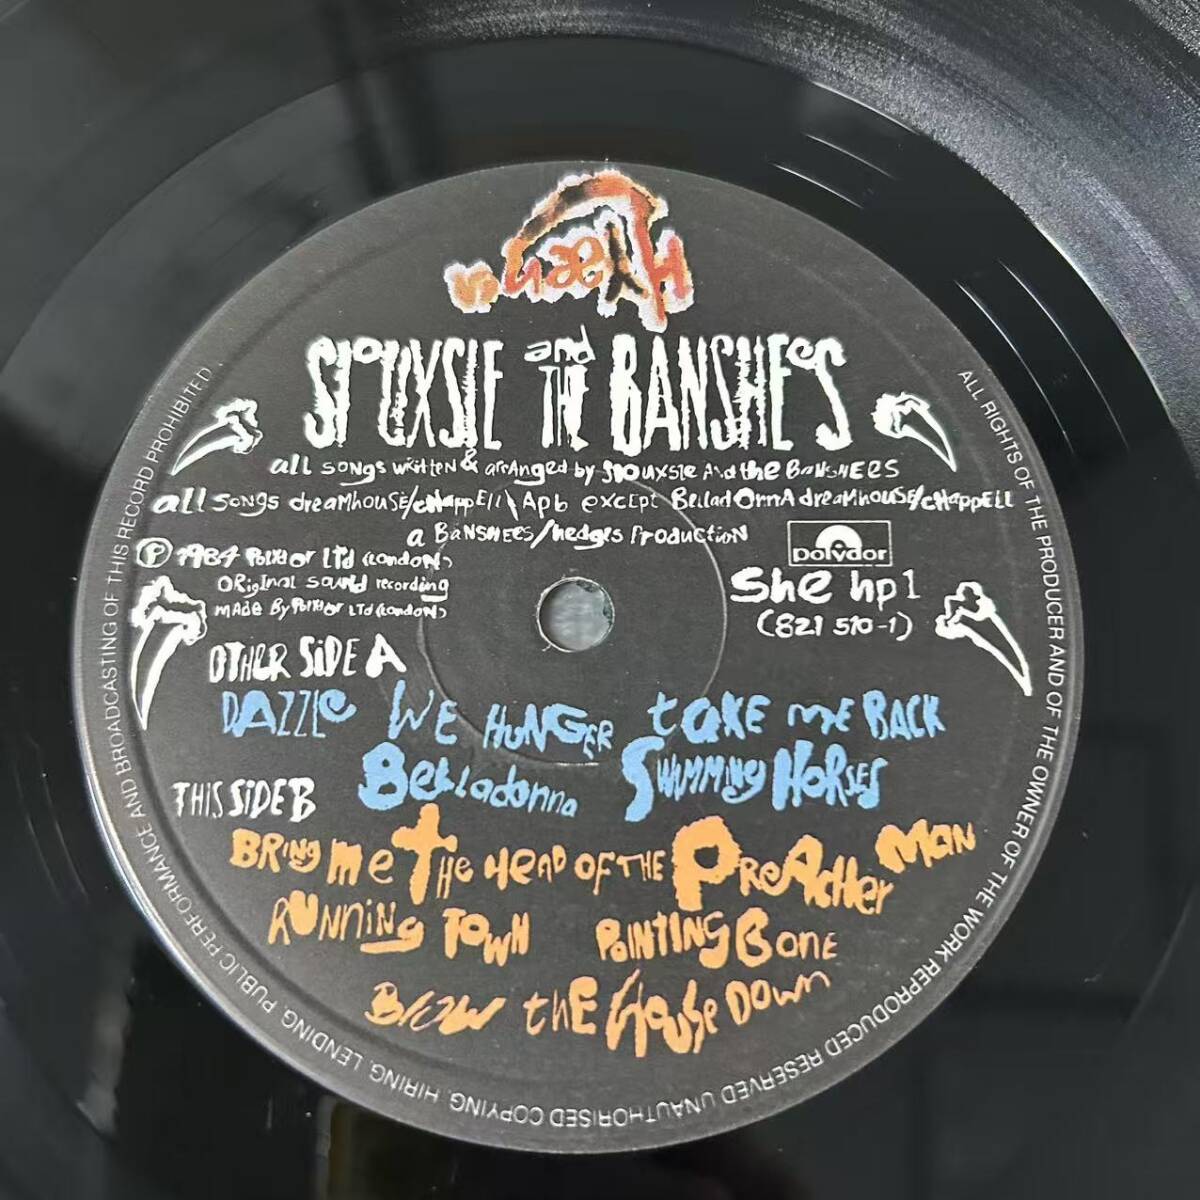 Hyæna
SIOUXSIE and THE BANSHEES
all songs written & arranged by Siouxsie and the Banshees
all songs dreamhouse/chappell\Apb except Belladonna dreamhouse/chappell
a Banshees/hedges Production
℗ 1984 Polydor Ltd (London)
Original sound recording
made By Polydor Ltd (London)
polydor
she hp1
(821 510-1)
OTHER SIDE A
DAZZLE WE HUNGER take me BACK
Belladonna Swimming Horses
THIS SIDE B
Bring me The Head OF THE Preacher Man
Running Town Pointing Bone
Blow the House Down
ALL RIGHTS OF THE PRODUCER AND OF THE OWNER OF THE WORK REPRODUCED RESERVED UNAUTHORISED COPYING, HIRING, LENDING, PUBLIC PERFORMANCE AND BROADCASTING OF THIS RECORD PROHIBITED